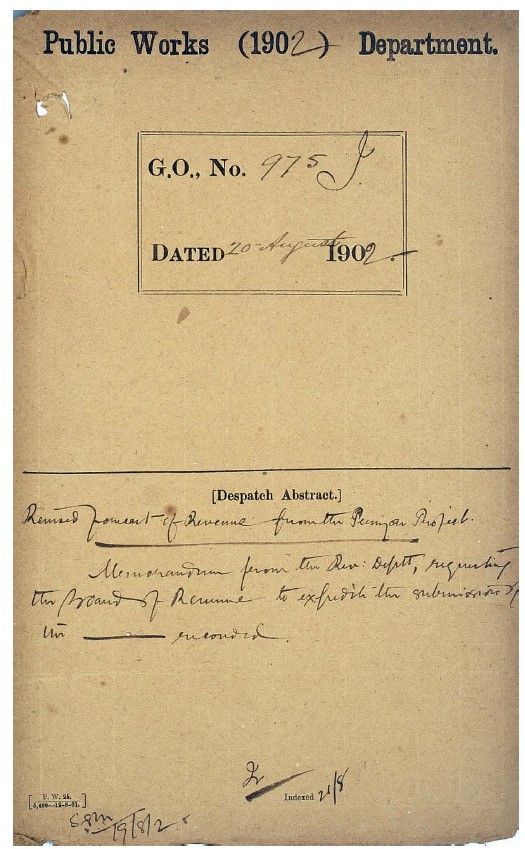 Public Works (1902) Department.
G.O., No. 975 I
DATED 20 August 1902.
[Despatch Abstract.]
Revised forecast of Revenue from the Periyar Project.
Memorandum from the Rev: Deptt, requesting
the Board of Revenue to expedite the submission of
the ——— recorded.
Indexed 21/8
P. W. 25.
19/8/2.